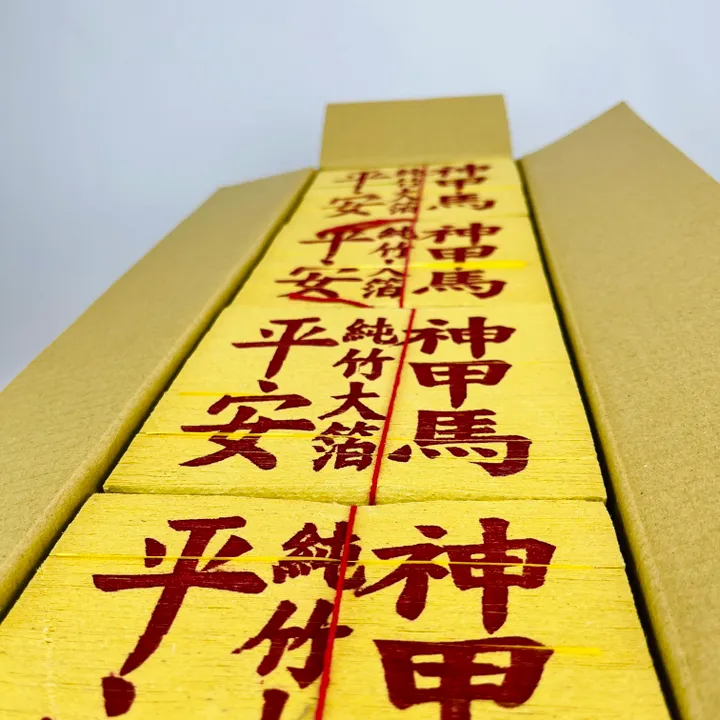 神甲馬
純竹大箔
平安
神甲馬
純竹大箔
平安
神甲馬
純竹大箔
平安
神甲
純竹
平